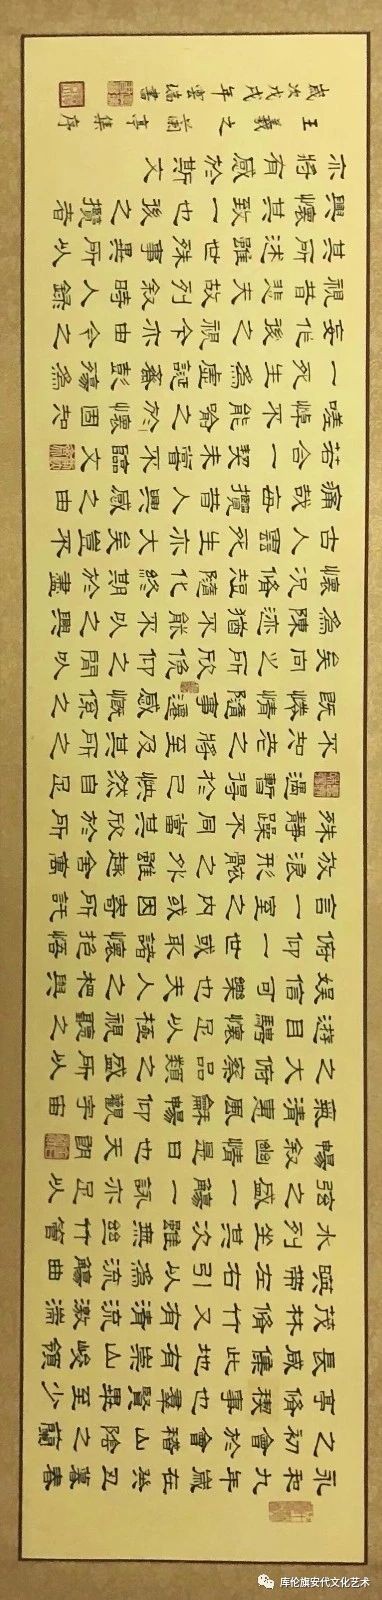 永和九年歲在癸丑暮春
之初會於會稽山陰之蘭
亭修禊事也羣賢畢至少
長咸集此地有崇山峻領
茂林修竹又有清流激湍
暎帶左右引以為流觴曲
水列坐其次雖無絲竹管
弦之盛一觴一詠亦足以
暢叙幽情是日也天朗
氣清惠風和暢仰觀宇宙
之大俯察品類之盛所以
遊目騁懷足以極視聽之
娛信可樂也夫人之相與
俯仰一世或取諸懷抱悟
言一室之內或因寄所託
放浪形骸之外雖趣舍萬
殊靜躁不同當其欣於所
遇暫得於己怏然自足
不知老之將至及其所之
既惓情隨事遷感慨係之
矣向之所欣俛仰之閒以
為陳迹猶不能不以之興
懷況修短隨化終期於盡
古人云死生亦大矣豈不
痛哉每攬昔人興感之由
若合一契未嘗不臨文
嗟悼不能喻之於懷固知
一死生為虛誕齊彭殤為
妄作後之視今亦由今之
視昔悲夫故列叙時人錄
其所述雖世殊事異所以
興懷其致一也後之攬者
亦將有感於斯文
王羲之蘭亭集序
歲次戊戌年雲書
库伦旗安代文化艺术